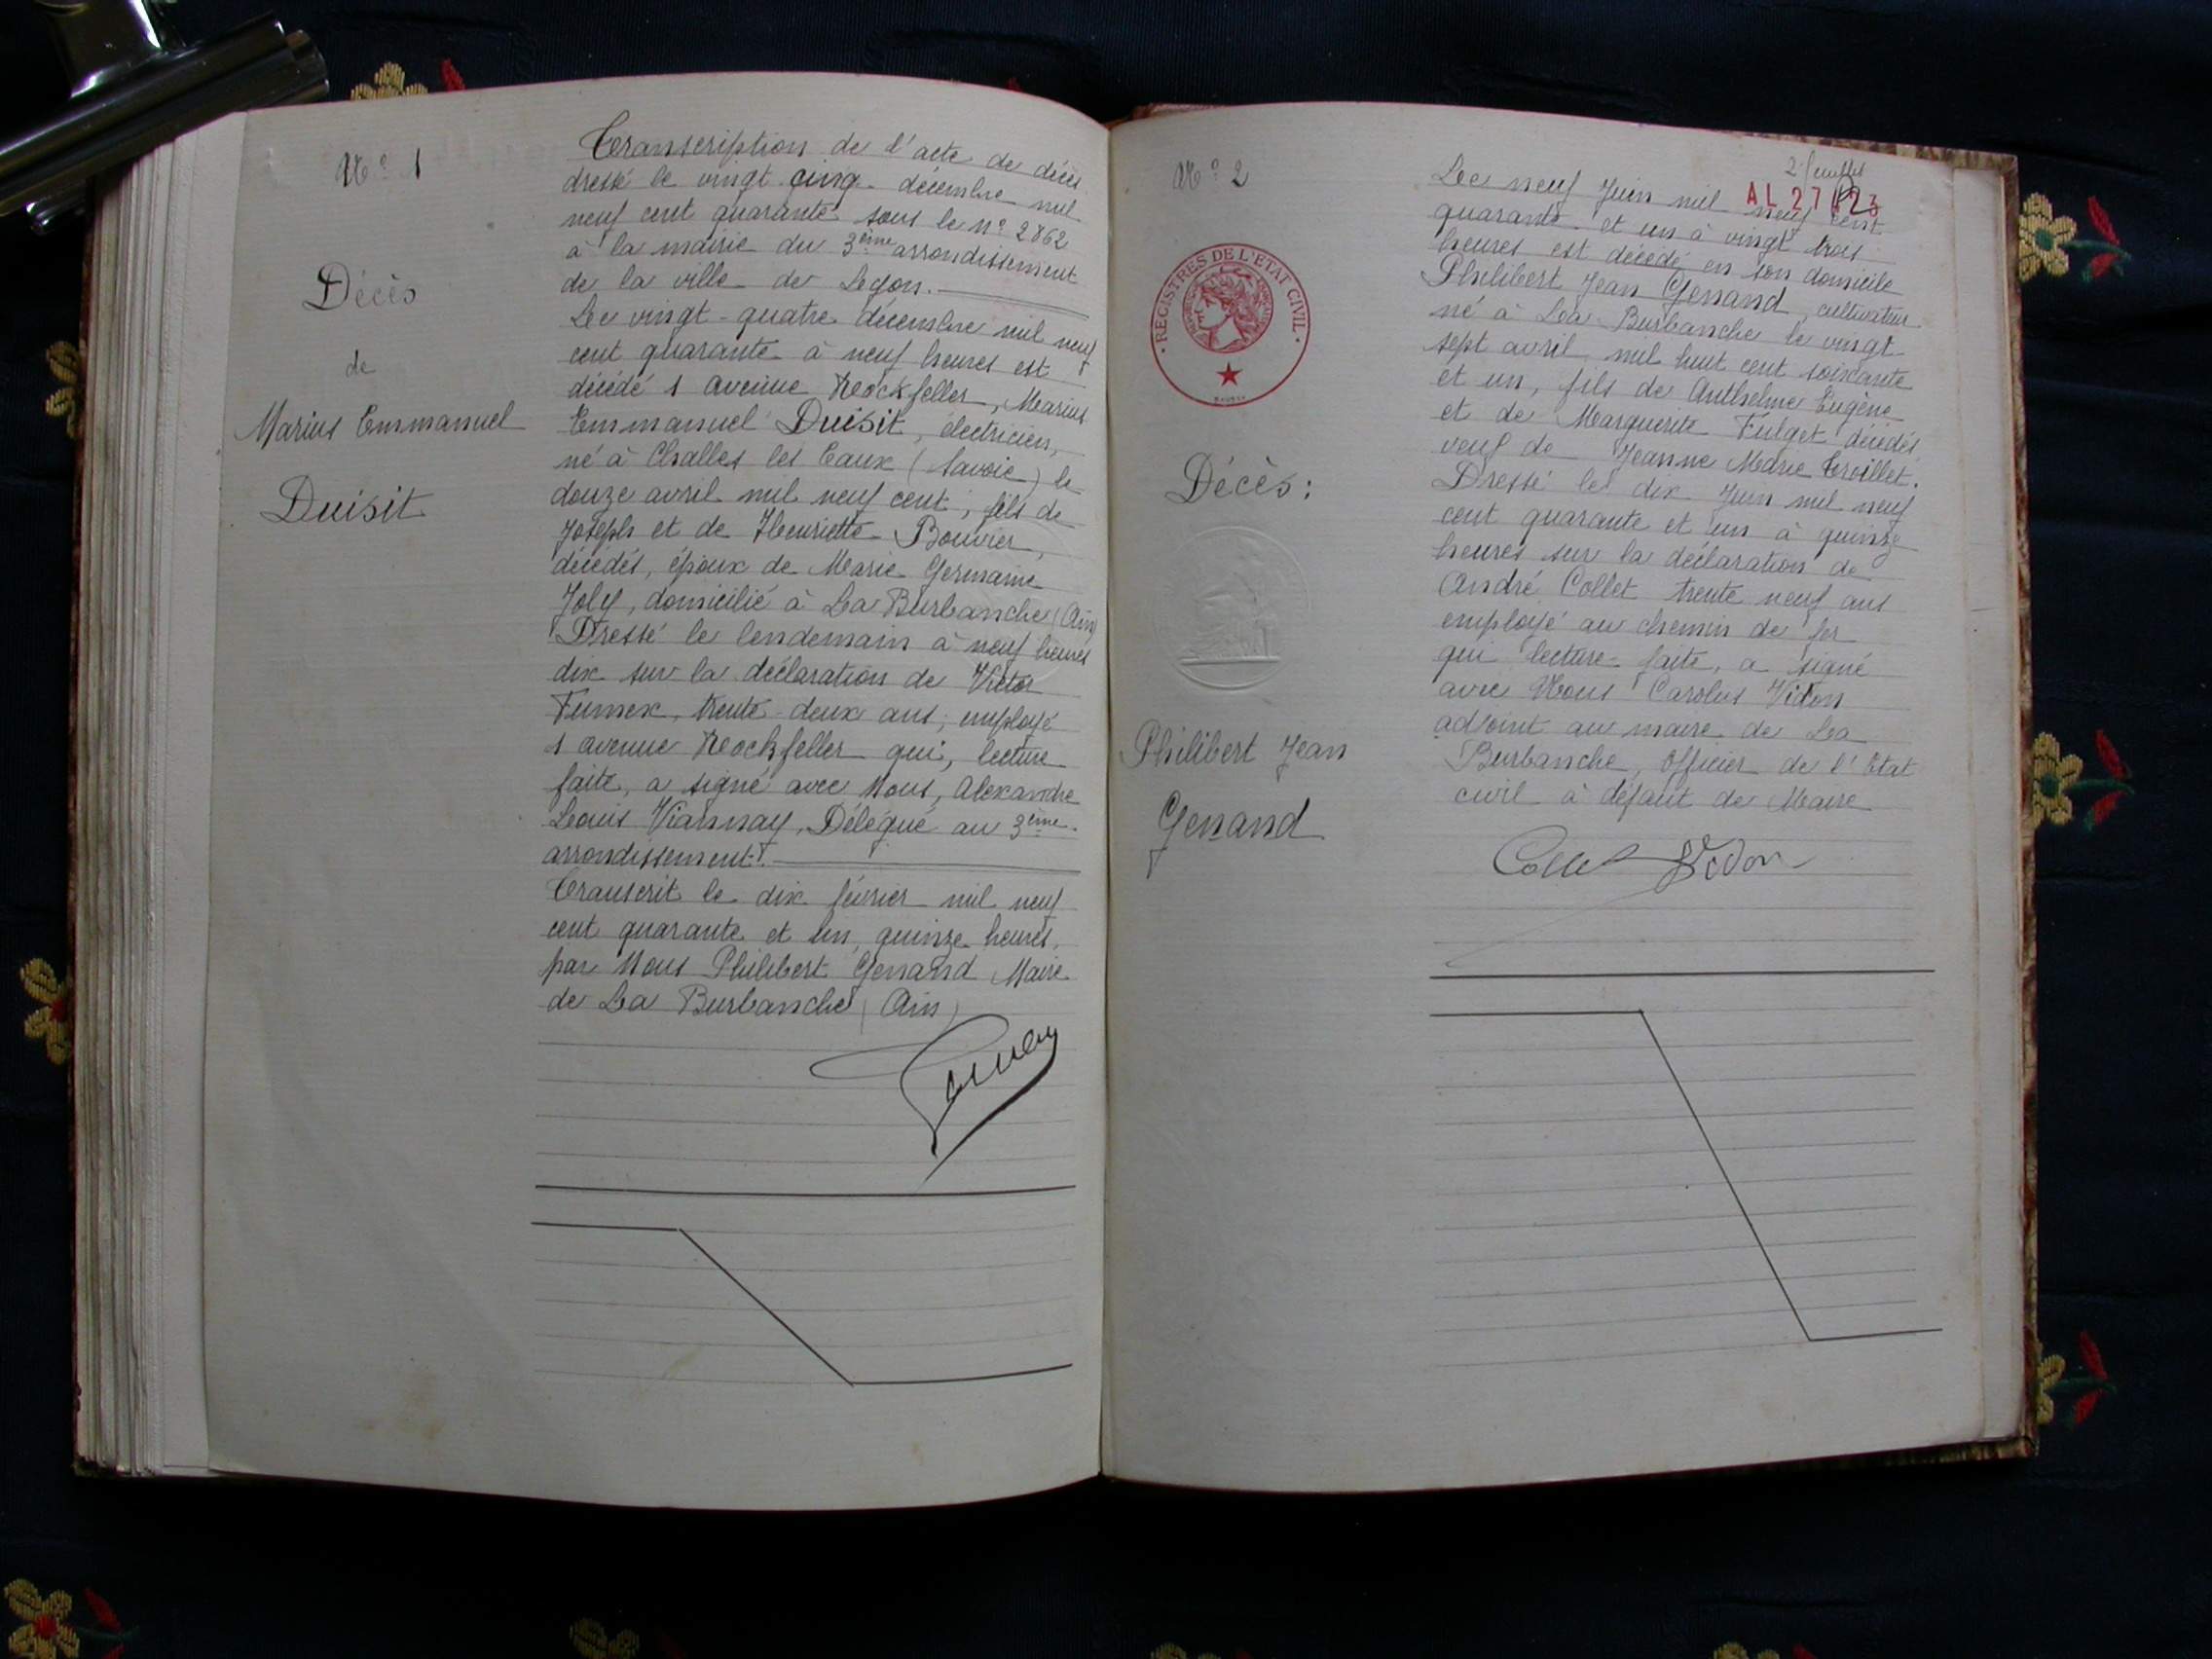 N° 1
Décès
de
Marius Emmanuel
Duisit
Transcription de l'acte de décès
dressé le vingt-cinq décembre mil
neuf cent quarante sous le n° 2862
à la mairie du 3ème arrondissement
de la ville de Lyon.
Le vingt-quatre décembre mil neuf
cent quarante à neuf heures est
décédé 1 avenue Rockfeller, Marius
Emmanuel Duisit, électricien,
né à Challes les Eaux (Savoie) le
douze avril mil neuf cent, fils de
Joseph et de Henriette Bouvier,
décédés, époux de Marie Germaine
Joly, domicilié à La Burbanche (Ain)
Dressé le lendemain à neuf heures
dix sur la déclaration de Victor
Fumex, trente-deux ans, employé
1 avenue Rockfeller qui, lecture
faite, a signé avec Nous, Alexandre
Louis Viannay, Délégué au 3ème
arrondissement.
Transcrit le dix février mil neuf
cent quarante et un, quinze heures,
par Nous Philibert Genand Maire
de La Burbanche (Ain)
N° 2
REGISTRES DE L'ETAT CIVIL
Décès:
Philibert Jean
Genand
2e feuillet
AL 27123
Le neuf Juin mil neuf cent
quarante et un à vingt trois
heures est décédé en son domicile
Philibert Jean Genand, cultivateur
né à La Burbanche le vingt
sept avril mil huit cent soixante
et un, fils de Anthelme Eugène
et de Marguerite Fulget décédés
veuf de Jeanne Marie Troillet.
Dressé le dix Juin mil neuf
cent quarante et un à quinze
heures sur la déclaration de
André Collet trente neuf ans
employé au chemin de fer
qui lecture faite, a signé
avec Nous Carolus Vidon
adjoint au maire de La
Burbanche, Officier de l'Etat
civil à défaut de Maire
Collet Vidon